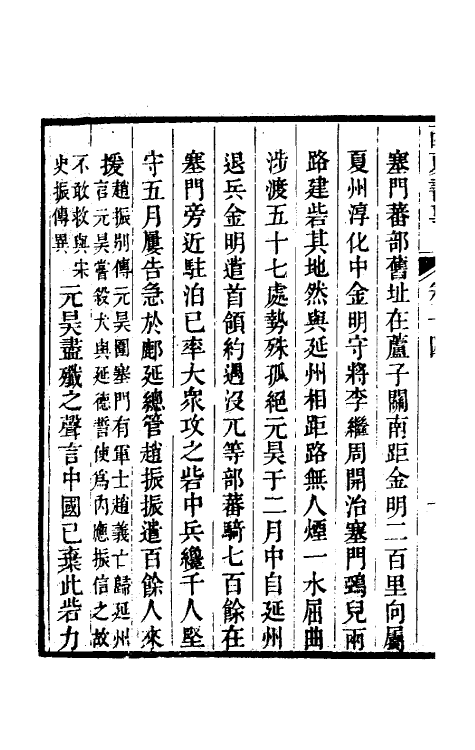 西夏書事 卷十四
塞門蕃部舊址在蘆子關南距金明二百里向屬
夏州淳化中金明守將李繼周開治塞門鵶兒兩
路建砦其地然與延州相距路無人煙一水屈曲
涉渡五十七處勢殊孤絕元昊于二月中自延州
退兵金明遣首領約遇沒兀等部蕃騎七百餘在
塞門旁近駐泊已率大衆攻之砦中兵纔千人堅
守五月屢告急於鄜延總管趙振振遣百餘人來
援
趙振別傳元昊圍塞門有軍士趙義亡歸延州
言元昊嘗殺犬與延德誓使爲內應振信之故
不敢救與宋
史振傳異
元昊盡殲之聲言中國已棄此砦力